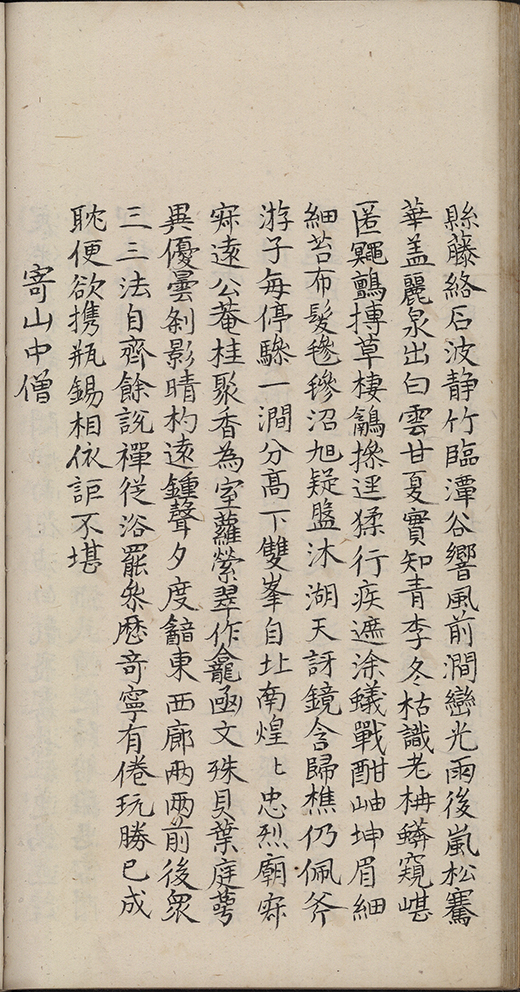 縣藤絡石波静竹臨潭谷響風前澗巒光雨後嵐松騫
華盖麗泉出白雲甘夏實知青李冬枯識老枏蟒窺嵁
匿鼯鸓摶草棲鷁摻逕猱行疾遮涂蟻戰酣岫坤眉細
細苔布髮毿毿沼旭疑盤沐湖天訝鏡含歸樵仍佩斧
游子每停驂一澗分高下雙峯自北南煌〻忠烈廟寂
寂遠公菴桂聚香為室蘿縈翠作龕函文殊貝葉庭萼
異優曇刹影晴杓遠鍾聲夕度谽東西廊兩兩前後衆
三三法自齊餘說禪從浴罷叅歷竒寧有倦玩勝已成
耽便欲携瓶錫相依詎不堪
寄山中僧